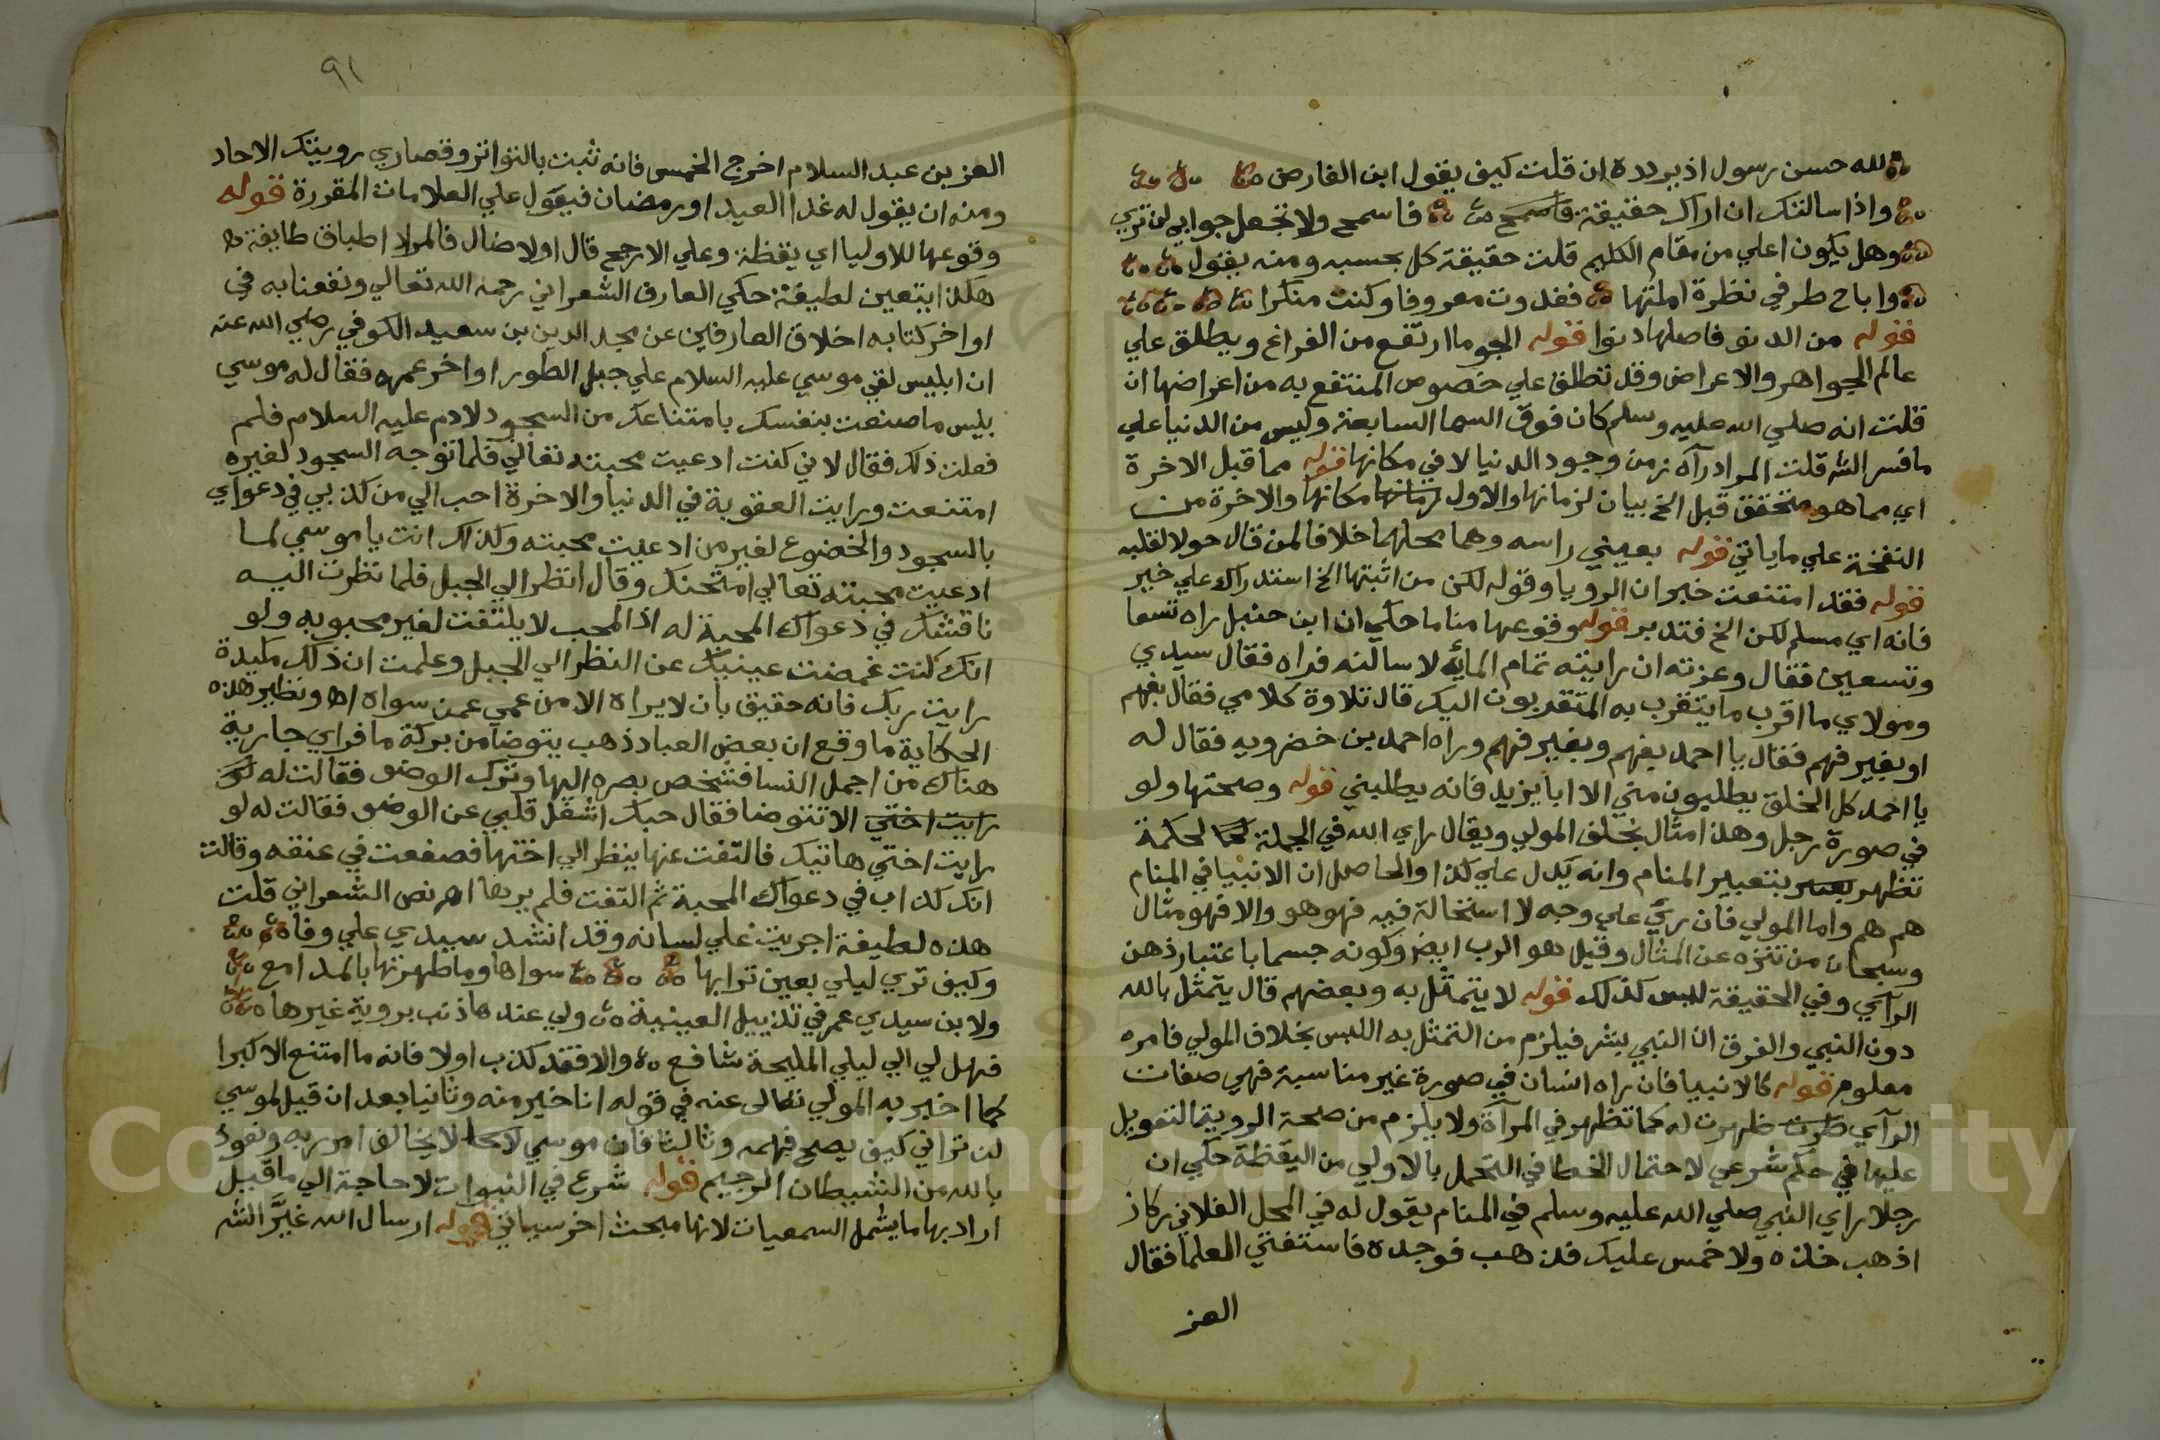 لله حسن رسول اذ يردده ان قلت كيف يقول ابن الفارض
واذا سالتك ان اراك حقيقة فاسمح فاسمح ولا تجعل جوابي لن تري
وهل يكون اعلي من مقام الكليم قلت حقيقة كل بحسبه ومنه يقول
واباح طرفي نظرة املتها فغدوت معروفا وكنت منكرا
قوله من الدنو فاصلها دنوا قوله الجو ما ارتفع من الفراغ ويطلق علي
عالم الجواهر والاعراض وقد تطلق علي خصوص المنتفع به من اعراضها ان
قلت انه صلي الله عليه وسلم كان فوق السما السابعة وليس من الدنيا علي
ما فسر الش قلت المراد رآه زمن وجود الدنيا لا في مكانها قوله مما قبل الاخرة
اي مما هو متحقق قبل الخ بيان لزمانها والاول زمانها مكانها والاخرة من
النفخة علي ما ياتي قوله بعيني راسه وهما محلهما خلافا لمن قال حولا لقلبه
قوله فقد امتنعت خبر ان الرويا وقوله لكن من اثبتها الخ استدراك علي خبر
فانه اي مسلم لكن الخ فتدبر قوله وقوعها مناما حكي ان ابن حنبل راه تسعا
وتسعين فقال وعزته ان رايته تمام المائة لا سالنه فراه فقال سيدي
ومولاي ما اقرب ما يتقرب به المتقربون اليك قال تلاوة كلامي فقال بفهم
او بغير فهم فقال يا احمد بفهم وبغير فهم وراه احمد بن خضرويه فقال له
يا احمد كل الخلق يطلبون مني الا ابا يزيد فانه يطلبني قوله وصحتها ولو
في صورة رجل وهذا مثال بخلق المولي ويقال راي الله في الجملة لحكمة
تظهر بتعبير المنام وانه يدل علي كذا والحاصل ان الانبيا في المنام
هم هم واما المولي فان ريي علي وجه لا استحالة فيه فهو هو والا فهو مثال
وسبحان من تنزه عن المثال وقيل هو الرب ايض وكونه جسما باعتبار ذهن
الرآي وفي الحقيقة ليس كذلك قوله لا يتمثل به وبعضهم قال يتمثل بالله
دون النبي والفرق ان النبي بشر فيلزم من التمثل به اللبس بخلاف المولي فامره
معلوم قوله كالانبيا فان راه انسان في صورة غير مناسبة فهي صفات
الرآي ظهرت ظهرت له كما تظهر في المرآة ولا يلزم من صحة الروية التعويل
عليها في حكم شرعي لاحتمال الخطا في التحمل بالاولي من اليقظة حكي ان
رجلا راي النبي صلي الله عليه وسلم في المنام يقول له في المحل الفلاني ركاز
اذهب خذه ولا خمس عليك فذهب فوجده فاستفتي العلما فقال
العز
٩١
العز بن عبد السلام اخرج الخمس فانه ثبت بالتواتر وقصاري رويتك الاحاد
ومنه ان يقول له غدا العيد او رمضان فيعول علي العلامات المقررة قوله
وقوعها للاوليا اي يقظة وعلي الارجح قال اولا ضال فالمراد اطباق طايفة
هلذا يتعين لطيفة حكي العارف الشعراني رحمه الله تعالي ونفعنا به في
اواخر كتابه اخلاق العارفين عن مجد الدين بن سعيد الكوفي رضي الله عنه
ان ابليس لقي موسي عليه السلام علي جبل الطور اواخر عمره فقال له موسي
بليس ما صنعت بنفسك بامتناعك من السجود لادم عليه السلام فلم
فعلت ذلك فقال لاني كنت ادعيت محبته تعالي فلما توجه السجود لغيره
امتنعت ورايت العقوبة في الدنيا والاخرة احب الي من كذبي في دعواي
بالسجود والخضوع لغير من ادعيت محبته وكذلك انت يا موسي لما
ادعيت محبته تعالي امتحنك وقال انظر الي الجبل فلما نظرت اليه
ناقشك في دعواك المحبة له اذ المحب لا يلتفت لغير محبوبه ولو
انك كنت غمضت عينيك عن النظر الي الجبل وعلمت ان ذلك مكيدة
رايت ربك فانه حقيق بان لا يراه الا من عمي عمن سواه اه ونظير هذه
الحكاية ما وقع ان بعض العباد ذهب يتوضا من بركة ما فراي جارية
هناك من اجمل النسا فشخص بصره اليها وترك الوضو فقالت له لو
رايت اختي الا تتوضا فقال حبك اشغل قلبي عن الوضو فقالت له لو
رايت اختي هاتيك فالتفت عنها ينظر الي اختها فصفعت في عنقه وقالت
انك كذاب في دعواك المحبة ثم التفت فلم يرها اه نص الشعراني قلت
هذه لطيفة اجريت علي لسانه وقد انشد سيدي علي وفاه
وكيف تري ليلي بعين ترابها سواها وما طهرتها بالمدامع
ولابن سيدي عمر في تذييل العينية ولي عندها ذنب بروية غيرها
فهل لي الي ليلي المليحة شافع والا فقد كذب اولا فانه ما امتنع الا كبرا
كما اخبر به المولي تعالى عنه في قوله انا خير منه وثانيا بعد ان قيل لموسي
لن تراني كيف يصح فهمه وثالثا فان موسي لا يخالف امر ربه ونعوذ
بالله من الشيطان الرجيم قوله شرع في النبوات لا حاجة الي ما قيل
اراد بها ما يشمل السمعيات لانها مبحث اخر سياتي قوله ارسال الله غير الش